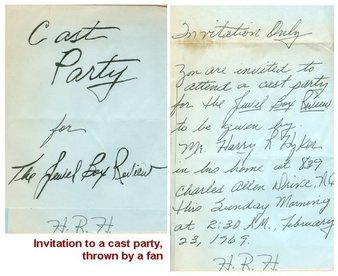 Cast
Party
for
The Jewel Box Review
H.R.H
Invitation to a cast party,
thrown by a fan
Invitation Only
You are invited to
attend a cast party
for the Jewel Box Review
to be given by
Mr. Harry R. Hyker
in his home at 839
Charles Allen Drive, N.E
this Sunday Morning
at 2:30 A.M., February
23, 1969.
H.R.H